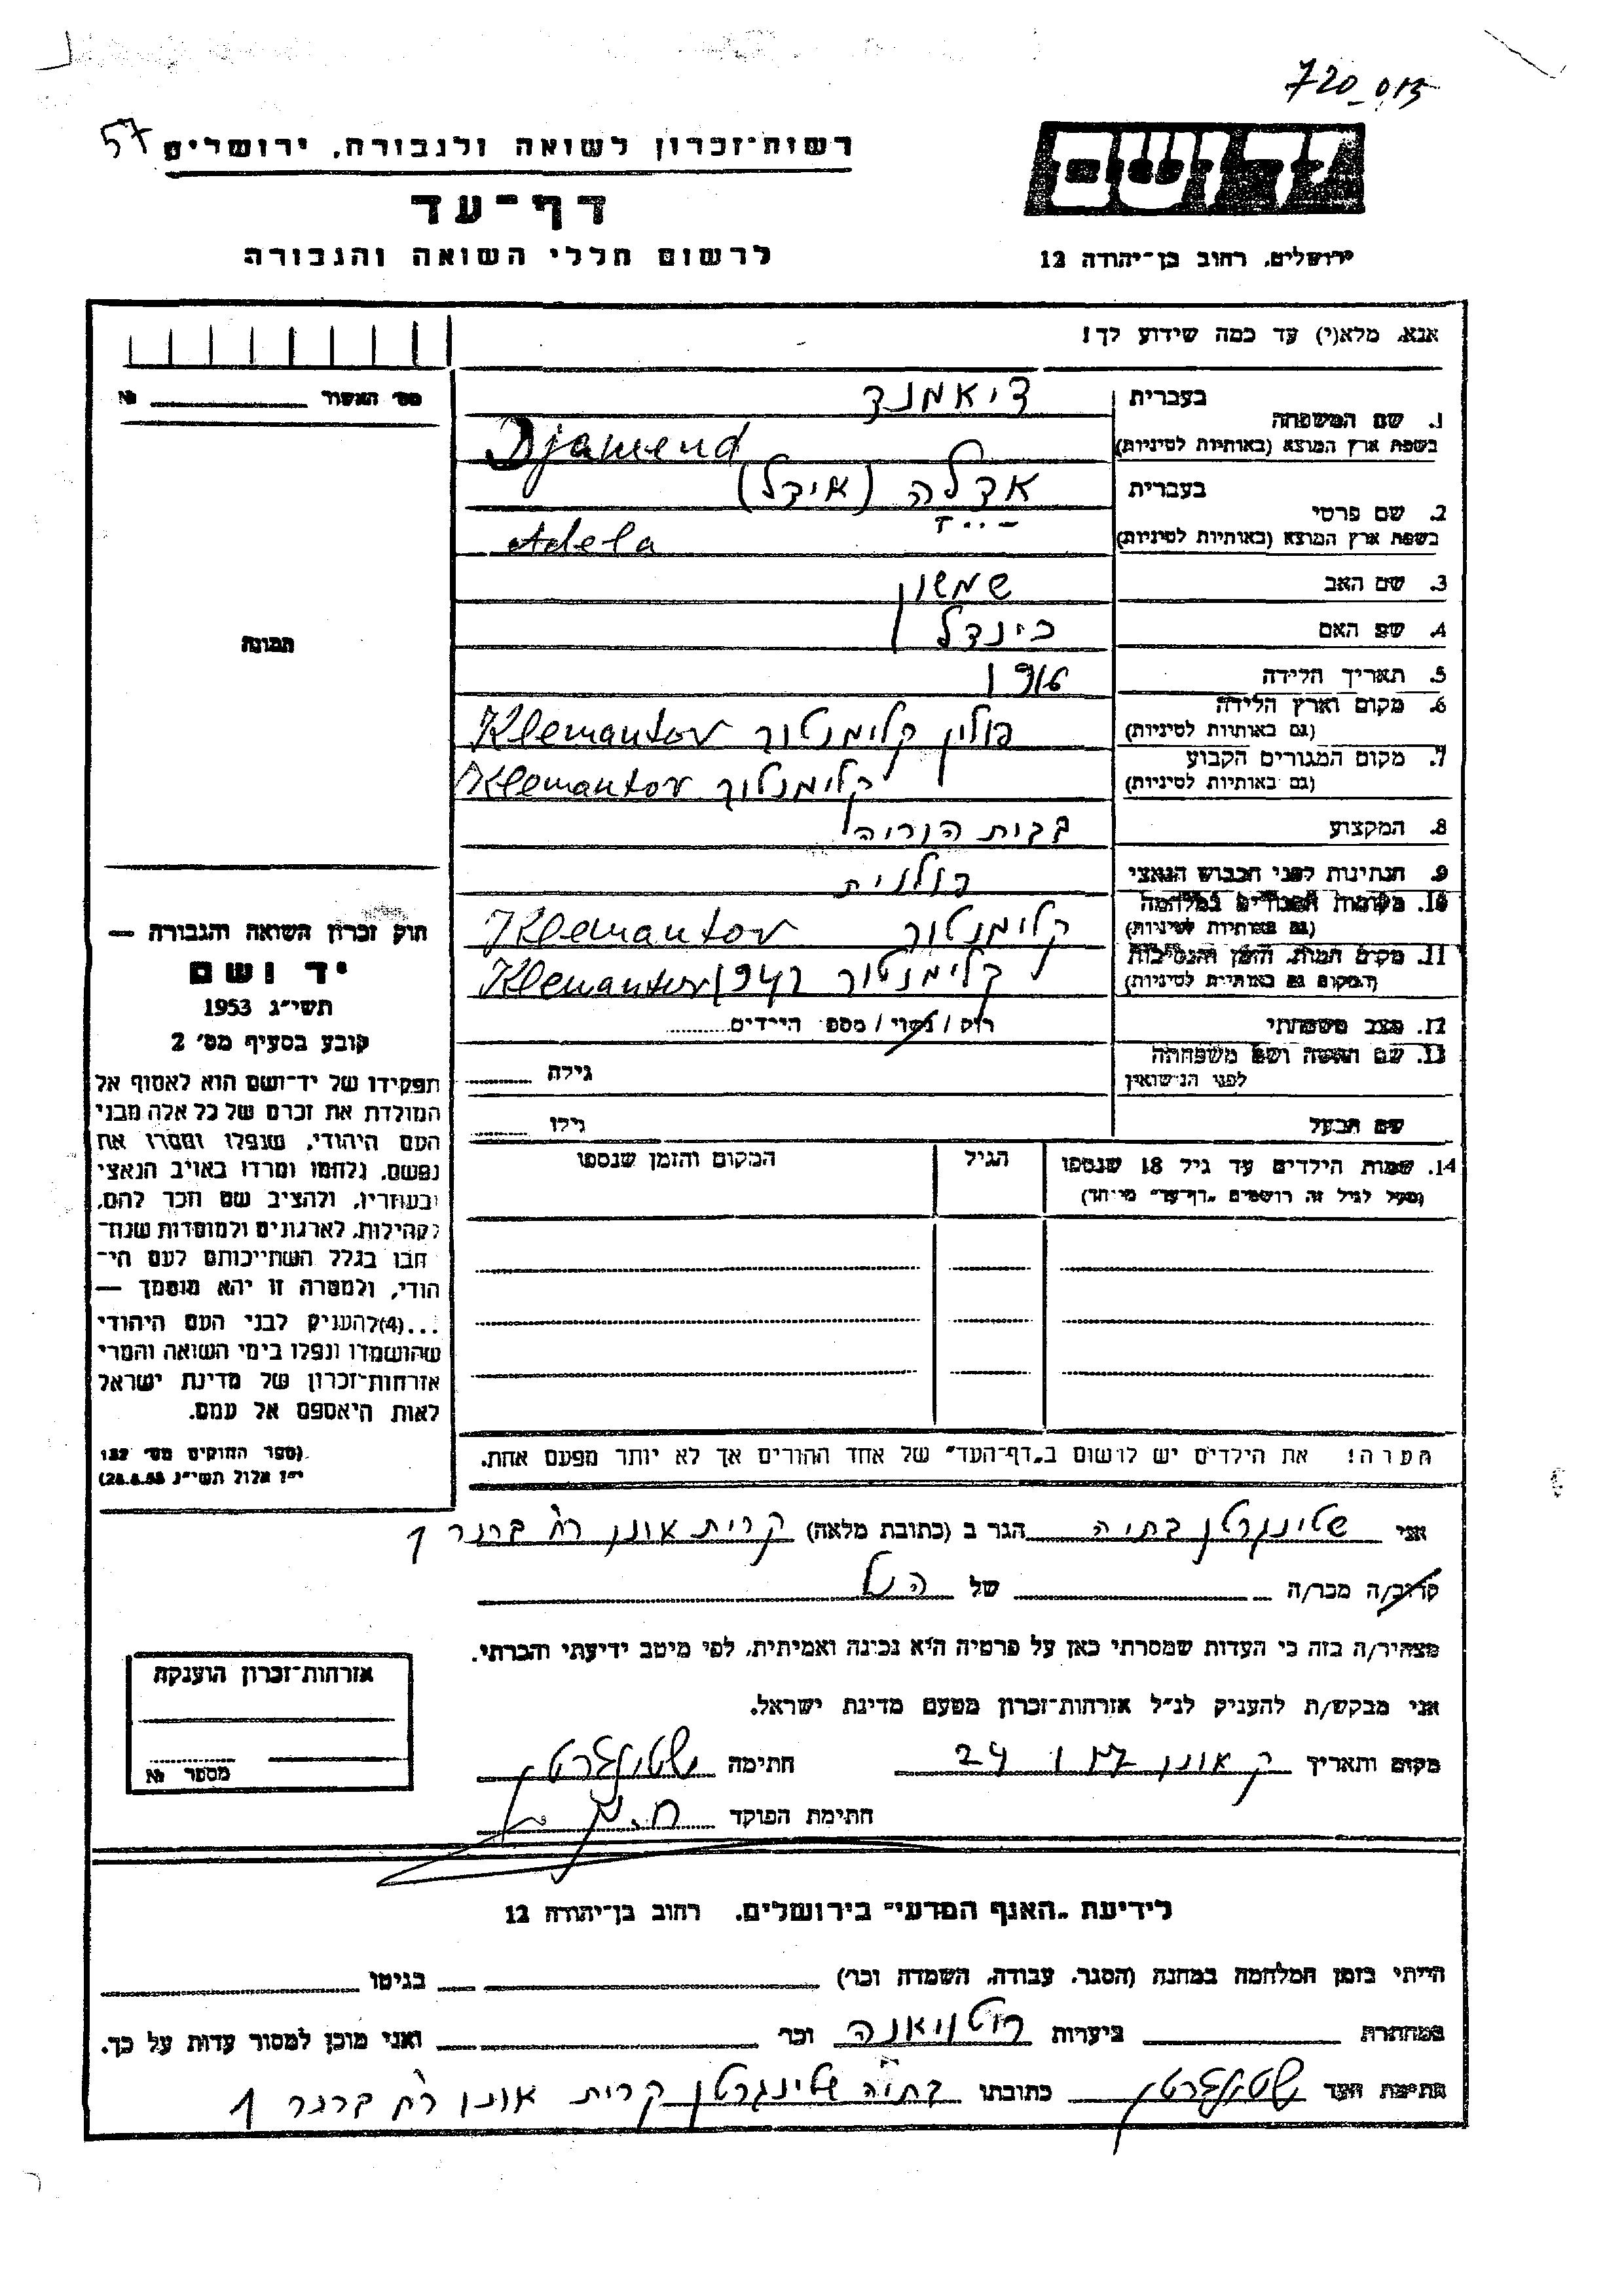 720-013
57
רשות־זכרון לשואה ולגבורה, ירושלים
יד ושם
דף־עד
לרשום חללי השואה והגבורה
ירושלים, רחוב בן־יהודה 12
אנא, מלא(י) עד כמה שידוע לך!
מס׳ האשור №
1. שם המשפחה
בעברית דיאמנד
בשפת ארץ המוצא (באותיות לטיניות) Djamend
2. שם פרטי
בעברית אדלה (אידל)
בשפת ארץ המוצא (באותיות לטיניות) Adela
3. שם האב שמשון
4. שם האם
5. תאריך הלידה
6. מקום וארץ הלידה (גם באותיות לטיניות) פולין קלימנטוב Klemantov
7. מקום המגורים הקבוע (גם באותיות לטיניות) קלימנטוב Klemantov
8. המקצוע בבית הוריה
9. הנתינות לפני הכבוש הנאצי פולנית
10. מקומות המגורים במלחמה (גם באותיות לטיניות) קלימנטוב Klemantov
11. מקום המות, הזמן והנסיבות (המקום גם באותיות לטיניות) קלימנטוב 1942 Klemantov
12. מצב משפחתי רוק / נשוי / מספר הילדים
13. שם האשה ושם משפחתה לפני הנישואין גילה
שם הבעל גילו
14. שמות הילדים עד גיל 18 שנספו הגיל המקום והזמן שנספו
(מעל לגיל זה רושמים „דף־עד״ מיוחד)
הערה! את הילדים יש לרשום ב„דף־העד״ של אחד ההורים אך לא יותר מפעם אחת.
תמונה
חוק זכרון השואה והגבורה —
יד ושם
תשי״ג 1953
קובע בסעיף מס׳ 2
תפקידו של יד־ושם הוא לאסוף אל
המולדת את זכרם של כל אלה מבני
העם היהודי, שנפלו ומסרו את
נפשם, נלחמו ומרדו באויב הנאצי
ובעוזריו, ולהציב שם וזכר להם,
לקהילות, לארגונים ולמוסדות שנח־
רבו בגלל השתייכותם לעם הי־
הודי, ולמטרה זו יהא מוסמך —
...(4) להעניק לבני העם היהודי
שהושמדו ונפלו בימי השואה והמרי
אזרחות־זכרון של מדינת ישראל
לאות היאספם אל עמם.
(ספר החוקים מס׳ 132
י״ז אלול תשי״ג 28.8.53)
אני שטינגרטן בתיה הגר ב (כתובת מלאה) קרית אונו רח׳ ברנר 1
קרוב/ה מכר/ה של הנ״ל
מצהיר/ה בזה כי העדות שמסרתי כאן על פרטיה היא נכונה ואמיתית, לפי מיטב ידיעתי והכרתי.
אני מבקש/ת להעניק לנ״ל אזרחות־זכרון מטעם מדינת ישראל.
מקום ותאריך ק אונו חתימה שטינגרטן
חתימת הפוקד
אזרחות־זכרון הוענקה
מספר №
לידיעת „האגף המדעי״ בירושלים, רחוב בן־יהודה 12
הייתי בזמן המלחמה במחנה (הסגר, עבודה, השמדה וכו׳) בגיטו
במחתרת ביערות וכו׳ ואני מוכן למסור עדות על כך.
חתימת העד שטינגרטן כתובתו בתיה שטינגרטן קרית אונו רח׳ ברנר 1